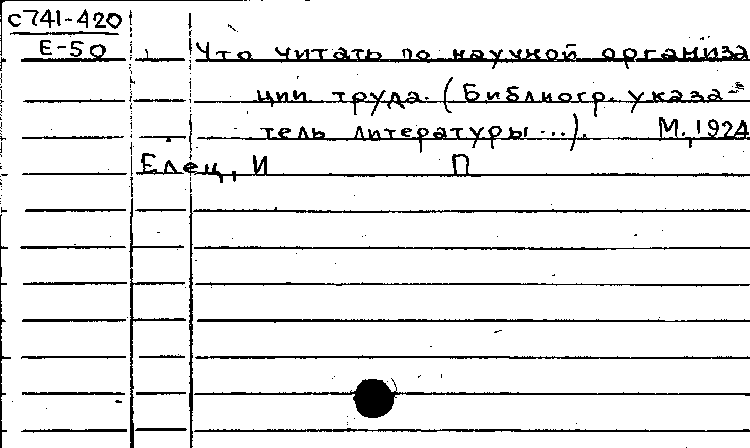 с741-420
Е-50
Что читать по научной организа
ции труда. (Библиогр. указа-
тель литературы...). М., 1924
Елец, И П